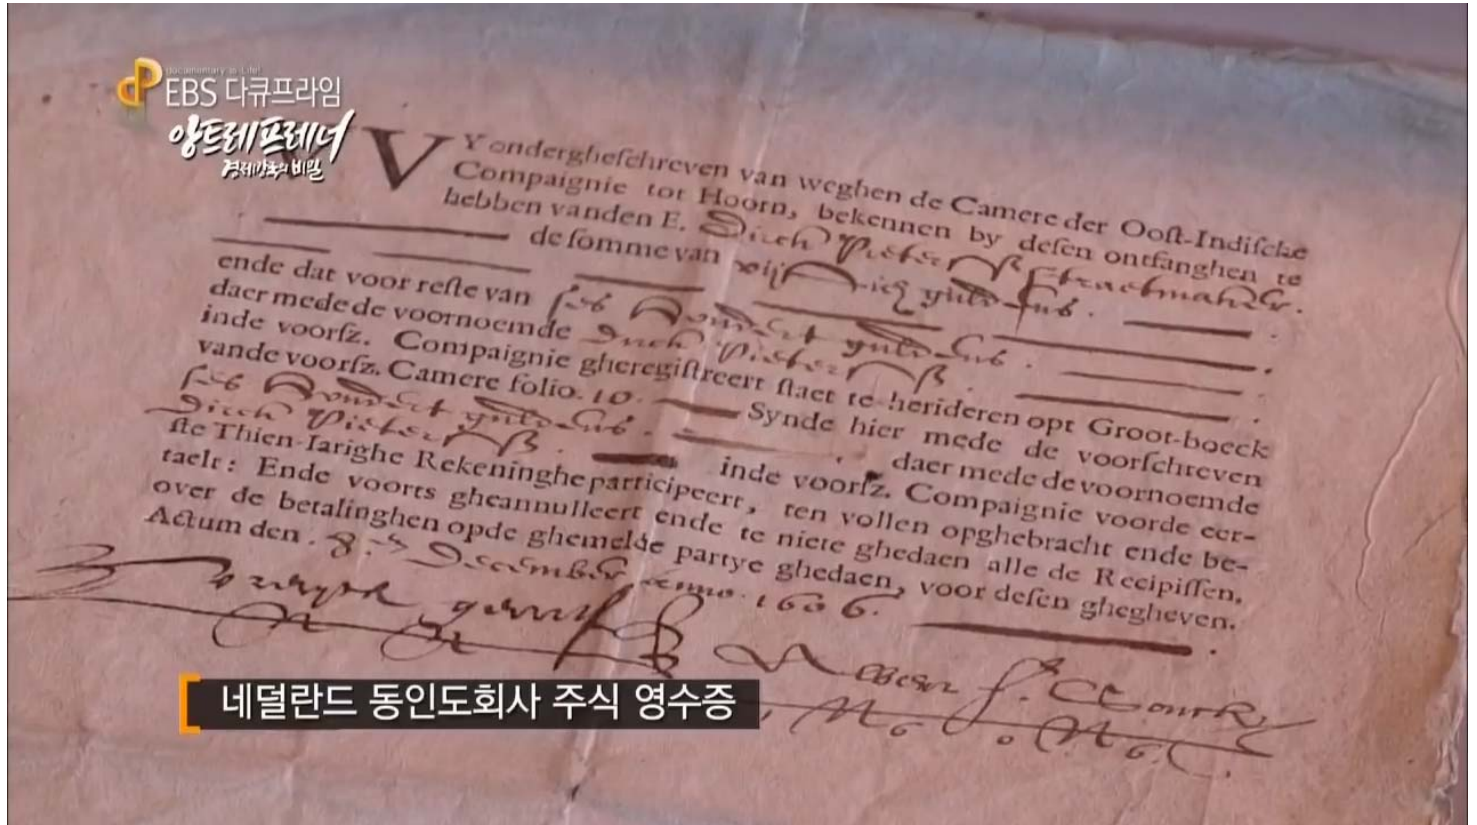 documentary is Life!
EBS 다큐프라임
앙트레프레너
경제강국의 비밀
VY ondergheſchreven van weghen de Camere der Ooſt-Indiſche
Compaignie tot Hoorn, bekennen by deſen ontfanghen te
hebben vanden E. Dirch Pieterſz Straetmaker.
de ſomme van
ende dat voor reſte van ſes Hondert guldens.
daer mede de voornoemde Dirch Pieterſz.
inde voorſz. Compaignie gheregiſtreert ſtaet te herideren opt Groot-boeck
vande voorſz. Camere folio. 10. Synde hier mede de voorſchreven
ſes Hondert guldens. daer mede de voornoemde
Dirch Pieterſz. inde voorſz. Compaignie voorde eer-
ſte Thien-Iarighe Rekeninghe participeert, ten vollen opghebracht ende be-
taelt: Ende voorts gheannulleert ende te niete ghedaen alle de Recipiſſen,
over de betalinghen opde ghemelde partye ghedaen, voor deſen ghegheven.
Actum den. 8. December anno. 1606.
네덜란드 동인도회사 주식 영수증